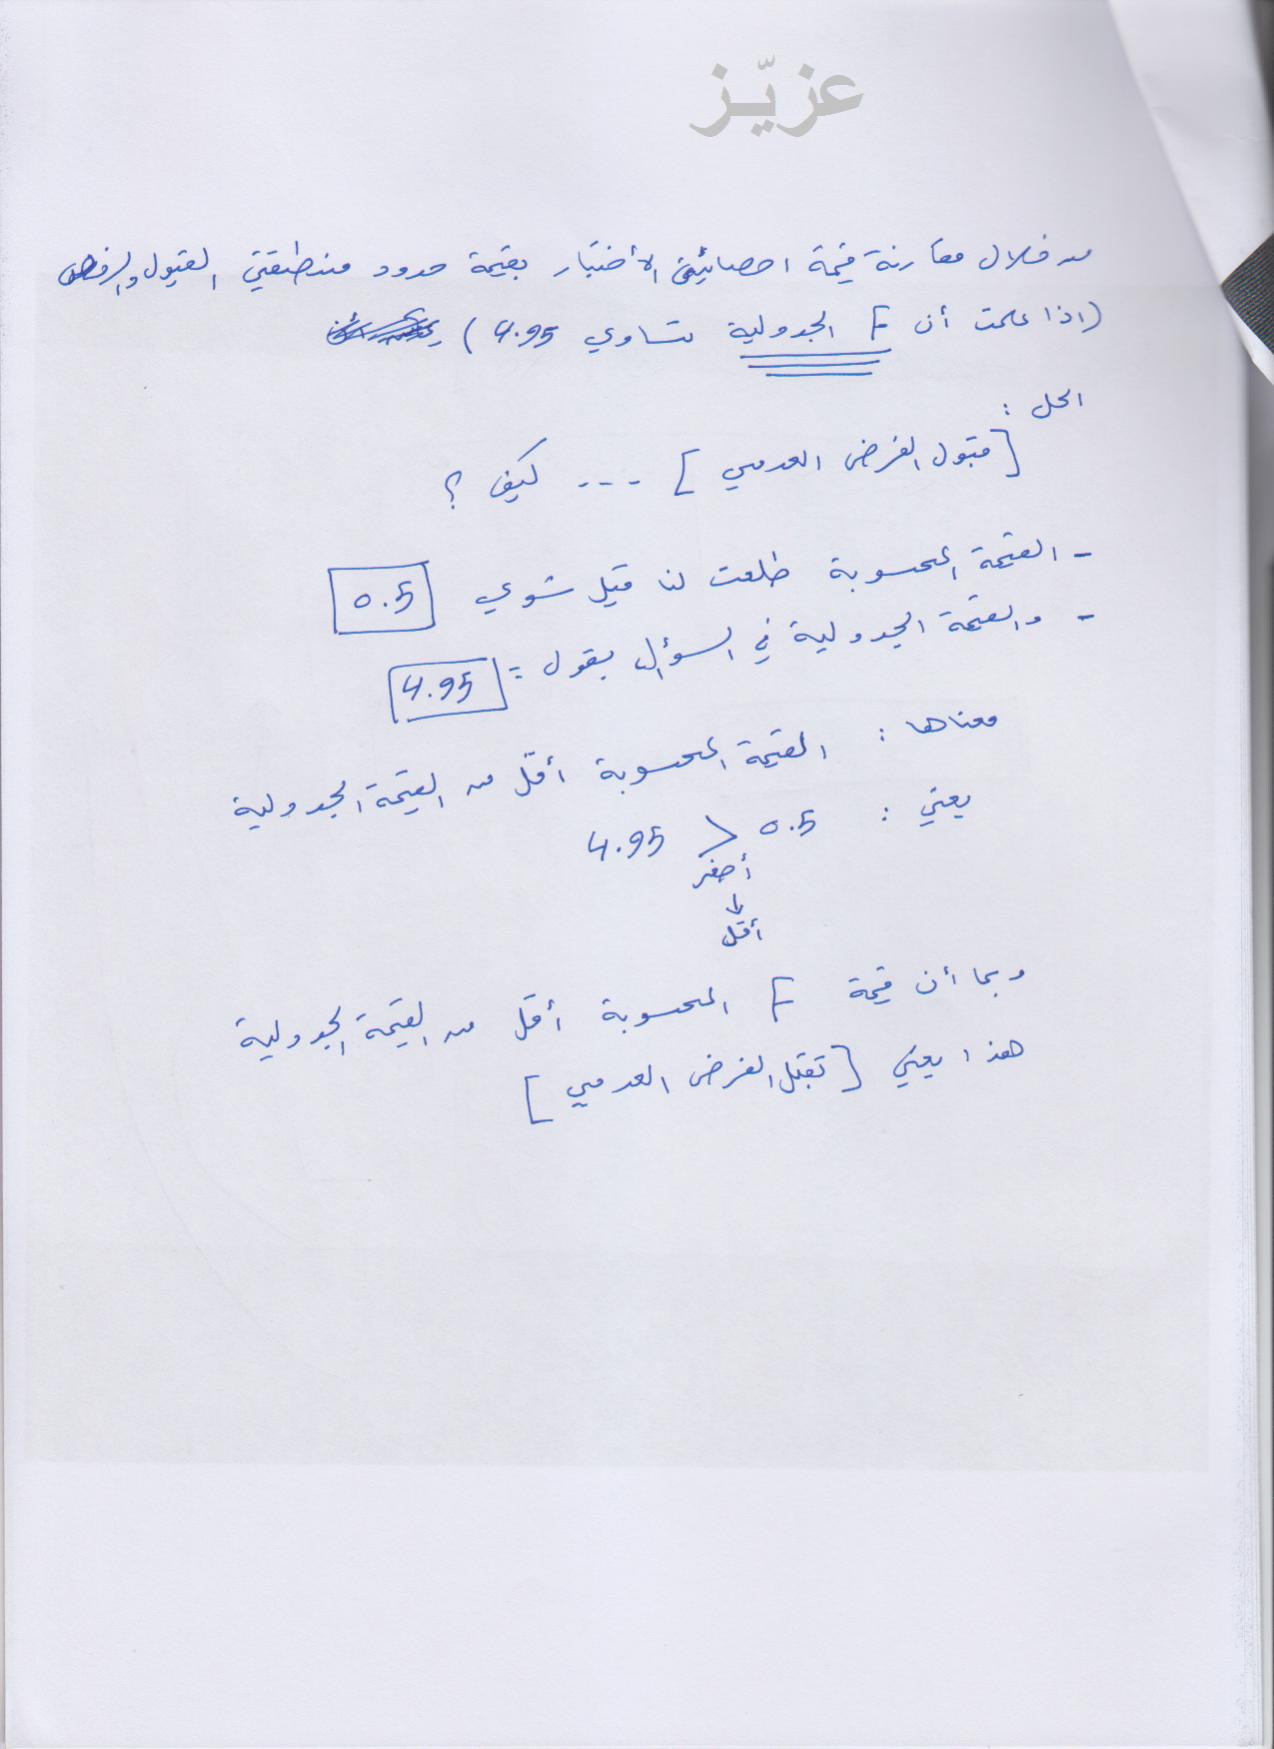 عزيّز
من خلال مقارنة قيمة احصائية الأختبار بقيمة حدود منطقتي القبول والرفض
(اذا علمت أن F الجدولية تساوي 4.95)
الحل :
[قبول الفرض العدمي] --- كيف ؟
- القيمة المحسوبة طلعت لنا قبل شوي 0.5
- والقيمة الجدولية في السؤال يقول = 4.95
معناها : القيمة المحسوبة أقل من القيمة الجدولية
يعني : 0.5 > 4.95
أصغر
↓
أقل
وبما أن قيمة F المحسوبة أقل من القيمة الجدولية
هذا يعني [نقبل الفرض العدمي]